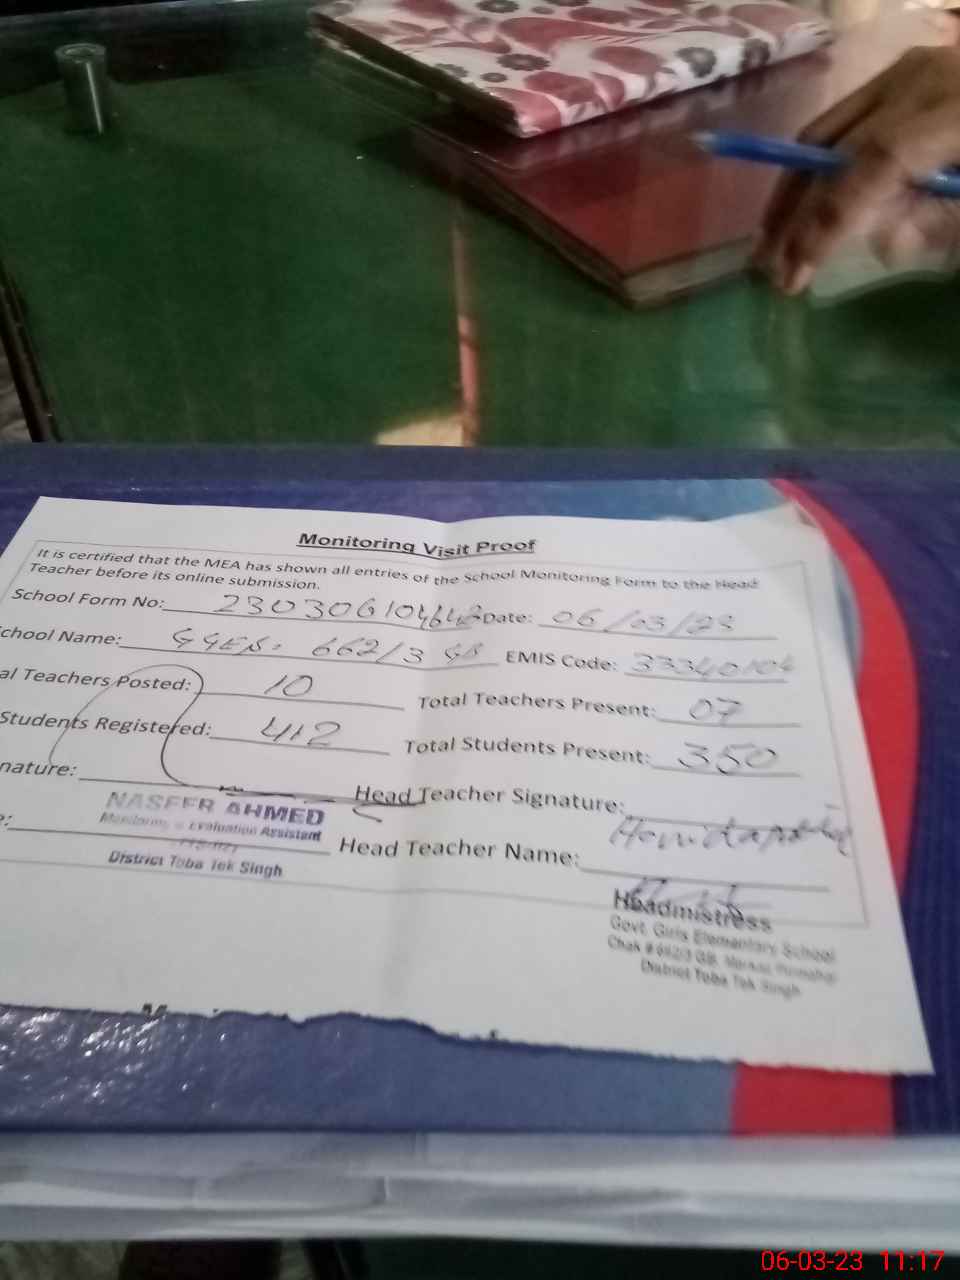 Monitoring Visit Proof
It is certified that the MEA has shown all entries of the School Monitoring Form to the Head
Teacher before its online submission.
School Form No: Date: 06/03/23
chool Name: GGES. 662/3 GB EMIS Code: 33340104
al Teachers Posted: 10 Total Teachers Present: 07
Students Registered: 412 Total Students Present: 350
nature: Head Teacher Signature:
NASEER AHMED
Monitoring & Evaluation Assistant
District Toba Tek Singh
e: Head Teacher Name:
Headmistress
Govt. Girls Elementary School
Chak # 662/3 GB, Markaz
District Toba Tek Singh
06-03-23 11:17